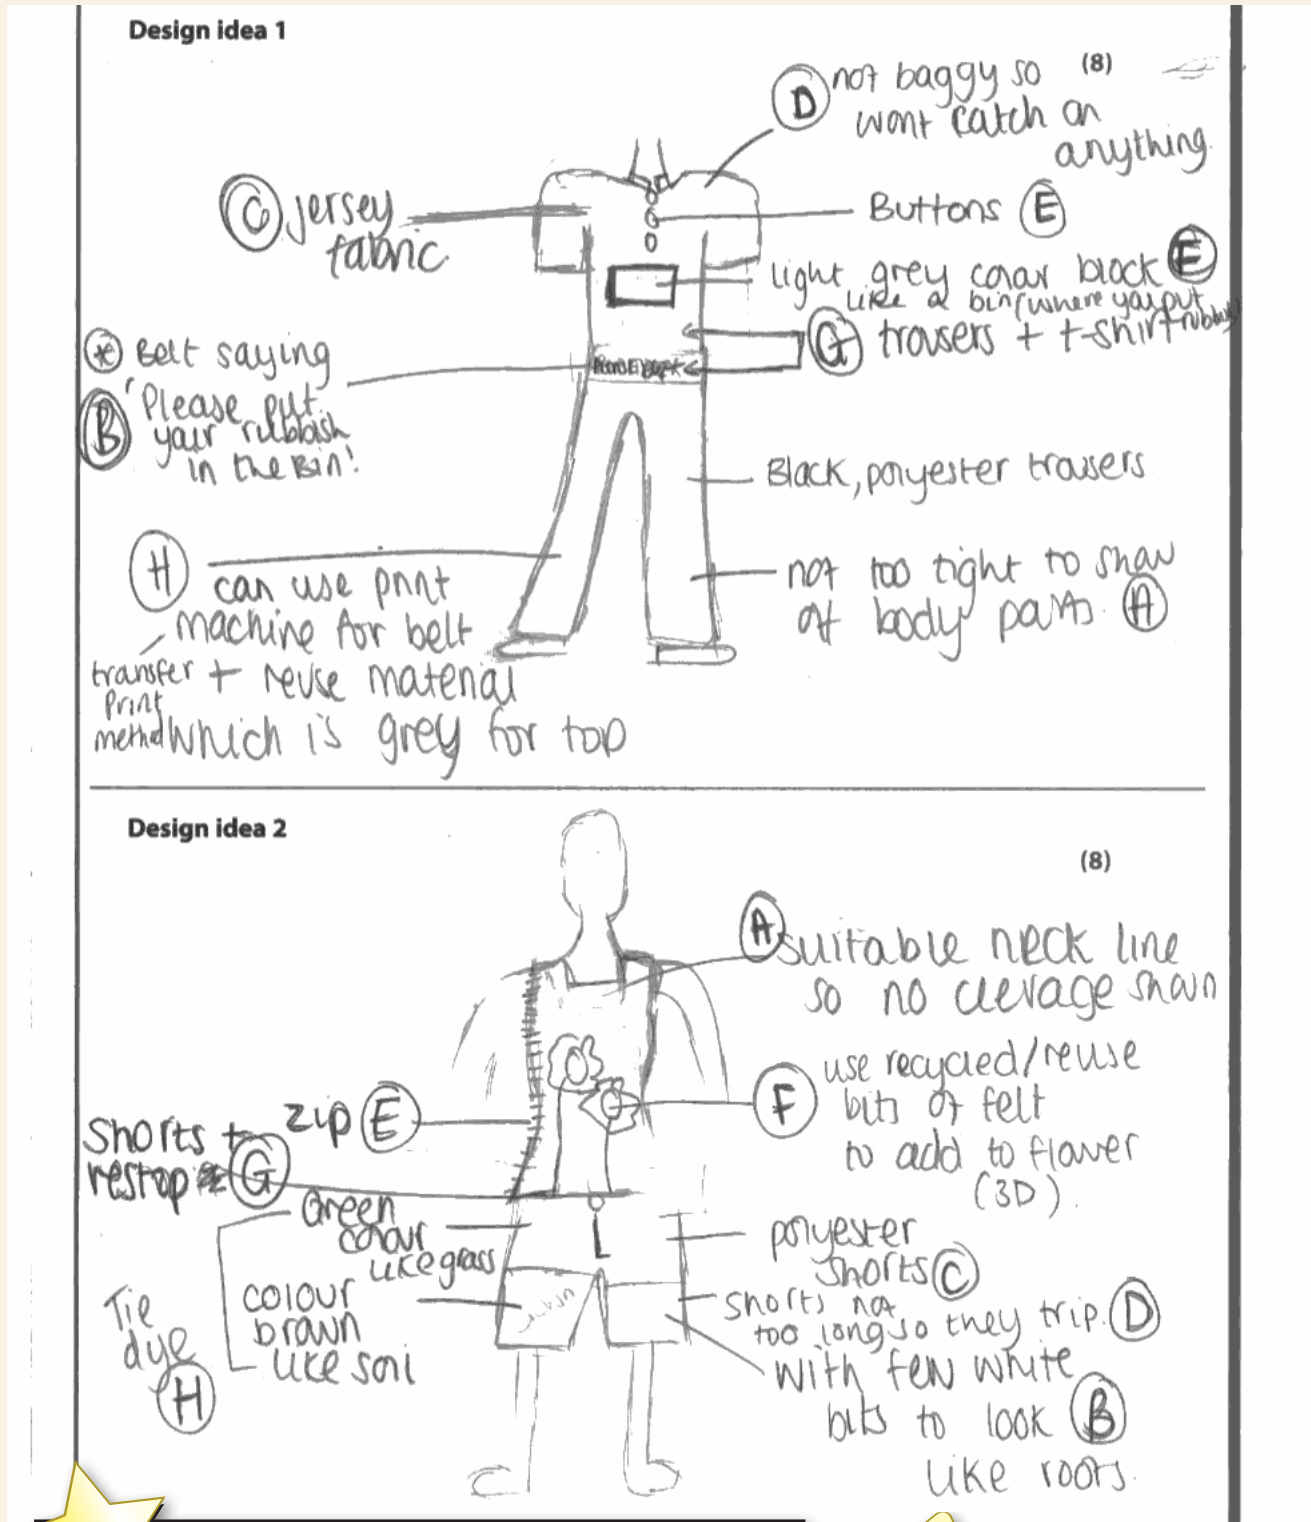 Design idea 1
(8)
D not baggy so
wont catch on
anything.
C jersey
fabric
Buttons E
light grey colour block F
like a bin (where you put
rubbish
G trousers + t-shirt
* Belt saying
B 'Please put
your rubbish
in the Bin'.
Black, polyester trousers
H
can use print
machine for belt
transfer + reuse material
print
method which is grey for top
not too tight to show
off body parts. A
Design idea 2
(8)
A suitable neck line
so no clevage shown
F use recycled/reuse
bits of felt
to add to flower
(3D).
zip E
Shorts +
G
Green
colour
like grass
colour
brown
like soil
Tie
dye
H
polyester
shorts C
shorts not
too long so they trip. D
with few white
bits to look B
like roots.